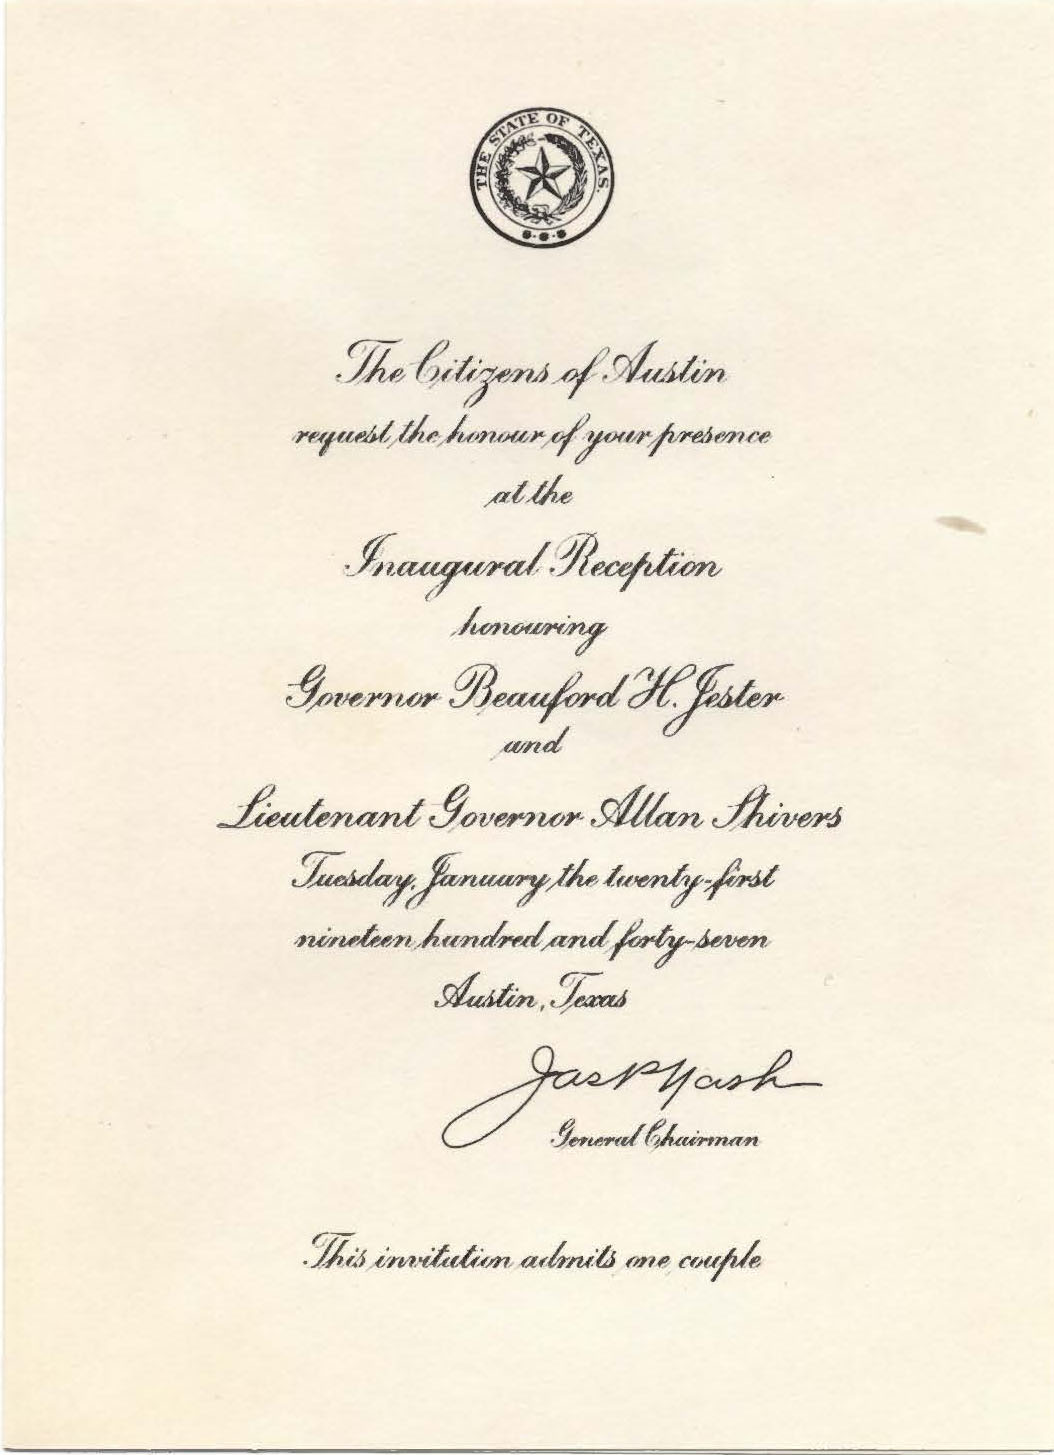 THE STATE OF TEXAS.
The Citizens of Austin
request the honour of your presence
at the
Inaugural Reception
honouring
Governor Beauford H. Jester
and
Lieutenant Governor Allan Shivers
Tuesday, January the twenty-first
nineteen hundred and forty-seven
Austin, Texas
Jas P Nash
General Chairman
This invitation admits one couple